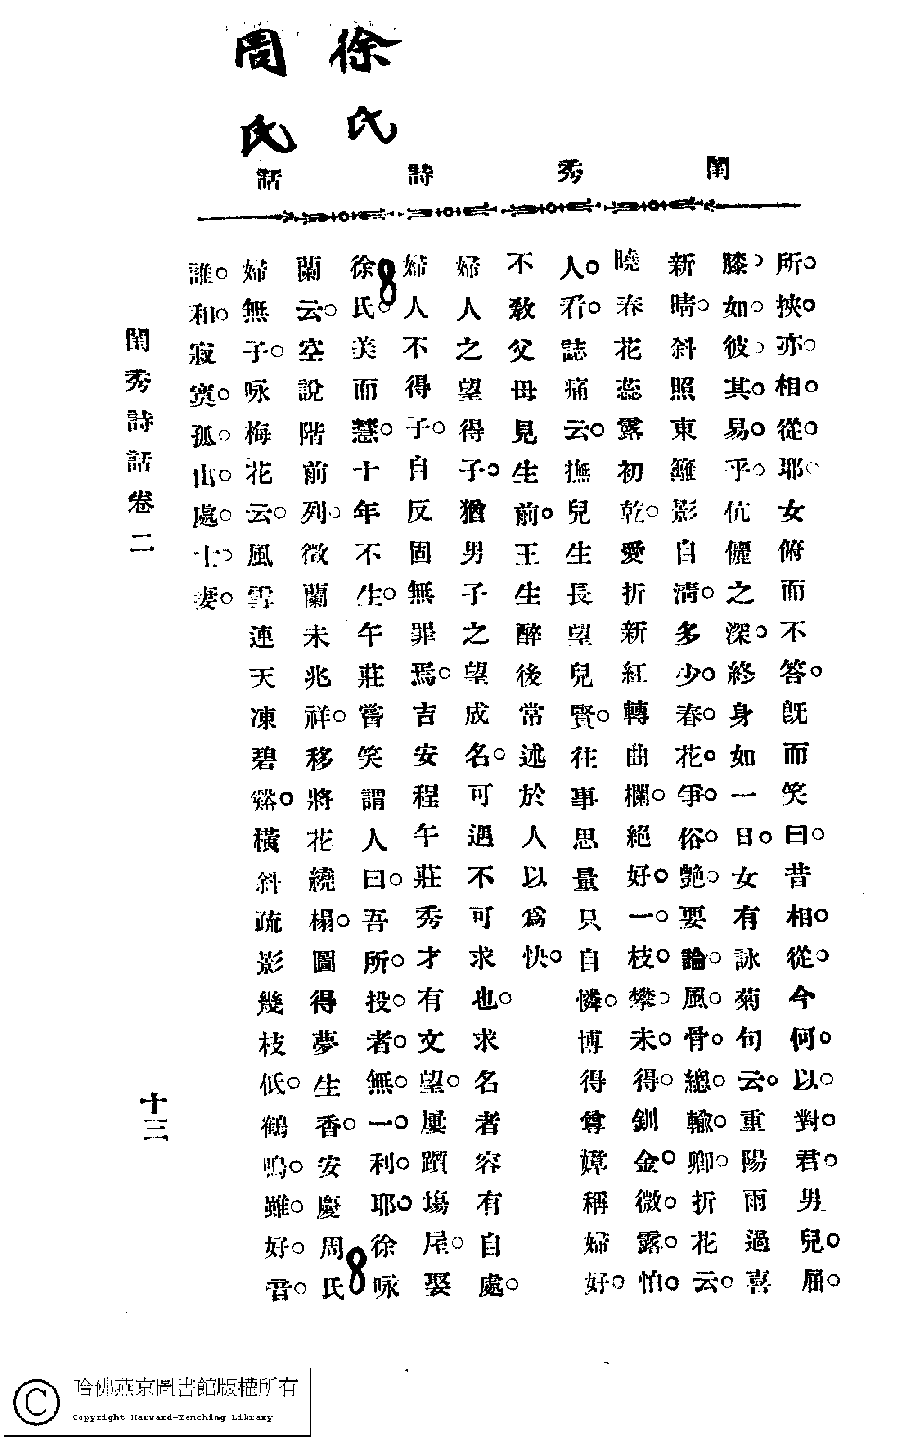 徐氏
周氏
閨秀詩話
所挾亦相從耶女俯而不答旣而笑曰昔相從今何以對君男兒屈
膝如彼其易乎伉儷之深終身如一日女有詠菊句云重陽雨過喜
新晴斜照東籬影自淸多少春花爭俗艷要論風骨總輸卿折花云
曉春花蕊露初乾愛折新紅轉曲欄絕好一枝攀未得釧金微露怕
人看誌痛云撫兒生長望兒賢往事思量只自憐博得尊嫜稱婦好
不敎父母見生前王生醉後常述於人以爲快
婦人之望得子猶男子之望成名可遇不可求也求名者容有自處
婦人不得子自反固無罪焉吉安程午莊秀才有文望屢躓塲屋娶
徐氏美而慧十年不生午莊嘗笑謂人曰吾所投者無一利耶徐咏
蘭云空說階前列徵蘭未兆祥移將花繞榻圖得夢生香安慶周氏
婦無子咏梅花云風雪連天凍碧谿橫斜疏影幾枝低鶴鳴雖好音
誰和寂寞孤山處士妻
閨秀詩話卷二
十三
哈佛燕京圖書館版權所有
Copyright Harvard-Yenching Library